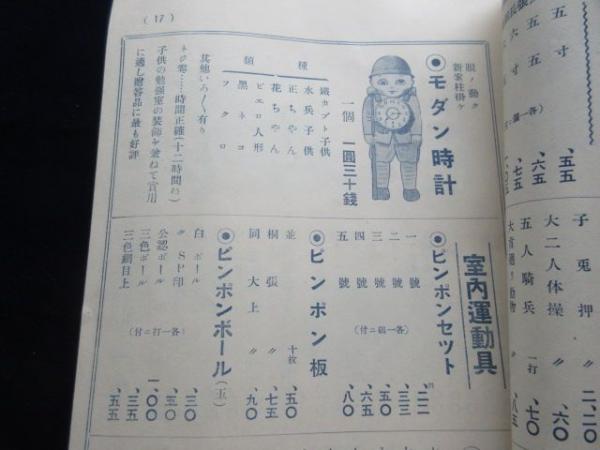 (17)
眼ノ動ク
新案柱掛ケ
◉モダン時計
一個 一圓三十錢
種類
鐵カブト子供
水兵子供
正ちやん
花ちやん
ピエロ人形
黒ネコ
フクロ
其他いろ〳〵有り
時間正確(十二時間
子供の勉强室の裝飾を兼ねて實用
に適し贈答品に最も好評
室內運動具
◉ピンポンセット
一號 、二二
二號 、三三
三號 、五〇
四號 、六五
五號 、八〇
(付ニ組一各)
◉ピンポン板
並 十枚 、五〇
桐張 〃 、七五
同大上 〃 、九〇
◉ピンポンボール(玉)
白ボール 、三〇
〃SP印 、五〇
公認ボール 一、〇〇
三色ボール 、三五
三色網目上 、五五
(付ニ打一各)
子兎押 〃 二、二〇
大二人体操 〃 、六〇
五人騎兵 一打 、七〇
、八三
五寸 、五五
五寸 、六五
五 、七五
六